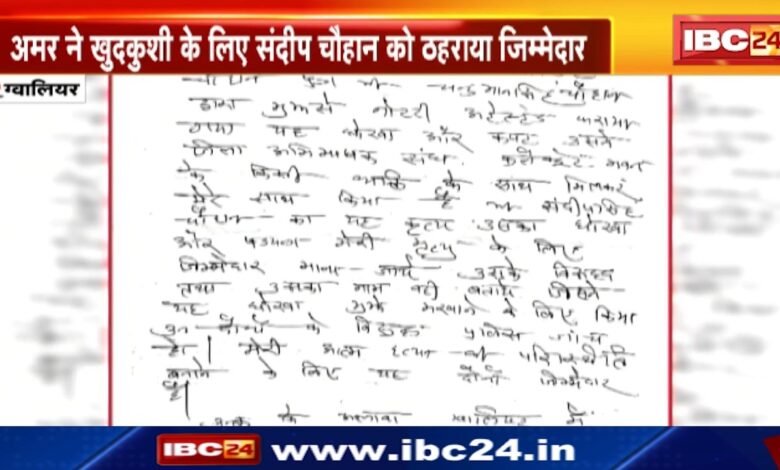 अमर ने खुदकुशी के लिए संदीप चौहान को ठहराया जिम्मेदार
IBC24
ग्वालियर
द्वारा मुझसे नोटरी अटेस्टेड कराया
गया यह धोखा और कपट उसने
जिला अभिभाषक संघ
के किसी व्यक्ति के साथ मिलकर
मेरे साथ किया है
का यह कृत्य उसका धोखा
और मेरी मृत्यु के लिए
जिम्मेदार माना जाये उसके विरुद्ध
तथा उसका नाम वही बताये जिसने
यह धोखा मुझे मरवाने के लिए किया
उन दोनों के विरुद्ध पुलिस जांच
मेरी आत्म हत्या की परिस्थिति
बनाने के लिए यह दोनों जिम्मेदार
है।
के अलावा ग्वालियर में
IBC24 www.ibc24.in